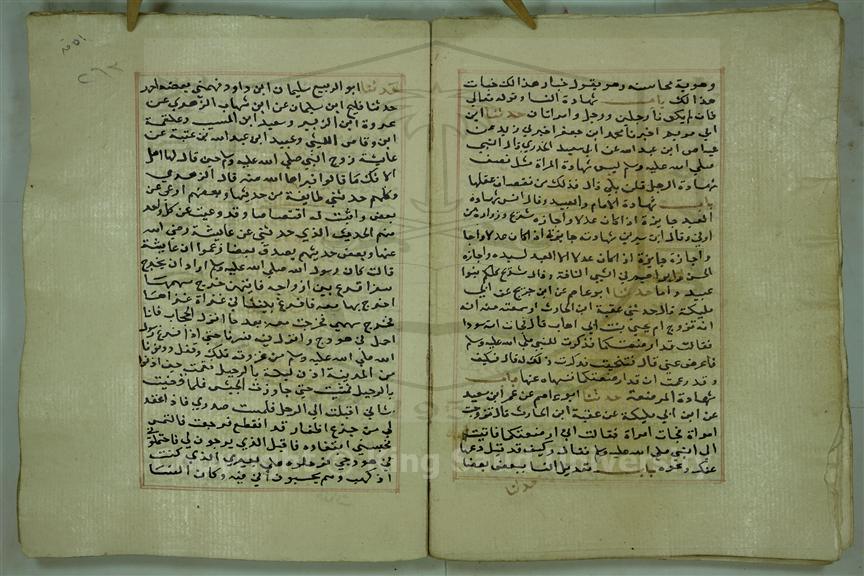 وهوية محاسنه وهو يقول خبار هذا لك خبات
هذا لك باب شهادة النسا وقوله تعالى
فان لم يكونا رجلين ورجل وامراتان حدثنا ابن
ابي مريم اخبرنا محمد ابن جعفر اخبرني زيد عن
عياض ابن عبد الله عن ابي سعيد الخدري قال النبي
صلي الله عليه وسلم ليس شهادة المراة مثل نصف
شهادة الرجل قلن بلي قال فذلك من نقصان عقلها
باب شهادة الاماء والعبيد وقال انس شهادة
العبد جايزة اذ اكان عدلا واجازه شريح وزرارة بن
اوفي وقال ابن سيرين شهادته جايزة اذ اكان عدلا واجا
واجازة جايزة اذ اكان عدلا الا العبد لسيده واجازه
الحسن وابراهيم في الشي التافه وقال شريح كلكم بنوا
عبيد واما حدثنا ابو عاصم عن ابن جريج عن ابي
مليكة قال حدثني عقبة ابن الحارث او سمعته منه انه
انه تزوج ام يحيي بنت ابي اهاب قال فجات امة سودا
فقالت قد ارضعتكما فذكرت للنبي صلي الله عليه وسلم
فاعرض عني قال فتنحيت فذكرت ذلك له قال فكيف
وقد زعمت ان قد ارضعتكما نهاه عنها باب
شهادة المرضعة حدثنا ابو عاصم عن عمر ابن سعيد
عن ابن ابي مليكة عن عقبة ابن الحارث قال تزوجت
امراة فجات امراة فقالت اني ارضعتكما فاتيت
الي النبي صلي الله عليه وسلم فقال وكيف وقد قيل دعها
عنك ونحوه باب تعديل النسا بعضهن بعضا
حدثنا
٢٦٢
حدثنا ابو الربيع سليمان ابن داود فهمني بعضه احمد
حدثنا فليح ابن سليمان عن ابن شهاب الزهري عن
عروة ابن الزبير وسعيد ابن المسيب وعلقمة
ابن وقاص الليثي وعبيد ابن عبد الله بن عتبة عن
عايشة زوج النبي صلي الله عليه وسلم حين قال لها اهل
الافك ما قالوا فبراها الله منه قال الزهري
وكلهم حدثني طايفة من حديثها وبعضهم اوعي من
بعض واثبت له اقتصاصا وقد وعيت عن كل واحد
منهم الحديث الذي حدثني عن عايشة رضي الله
عنها وبعض حديثهم يصدق بعضا زعموا ان عايشة
قالت كان رسول الله صلي الله عليه وسلم اذا اراد ان يخرج
سفرا قرع بين ازواجه فايتهن خرج سهمها
اخرج بها معه فاقرع بيننا في غزاة غزاها
فخرج سهمي فخرجت معه بعد ما انزل الحجاب فانا
احمل في هودج وانزل فيه فسرنا حتي اذا فرغ رسول
الله صلي الله عليه وسلم من غزوته تلك وقفل ودنونا
من المدينة اذن ليلة بالرحيل فقمت حين اذنوا
بالرحيل فمشيت حتي جاوزت الجيش فلما قضيت
شاني اقبلت الي الرحل فلمست صدري فاذا عقد
لي من جزع اظفار قد انقطع فرجعت فالتمس
فحبسني ابتغاوه فاقبل الذي يرحلون لي فاحتملوا
في هودجي فرحلوه علي بعيري الذي كنت
اركب وهم يحسبون اني فيه وكان النسا